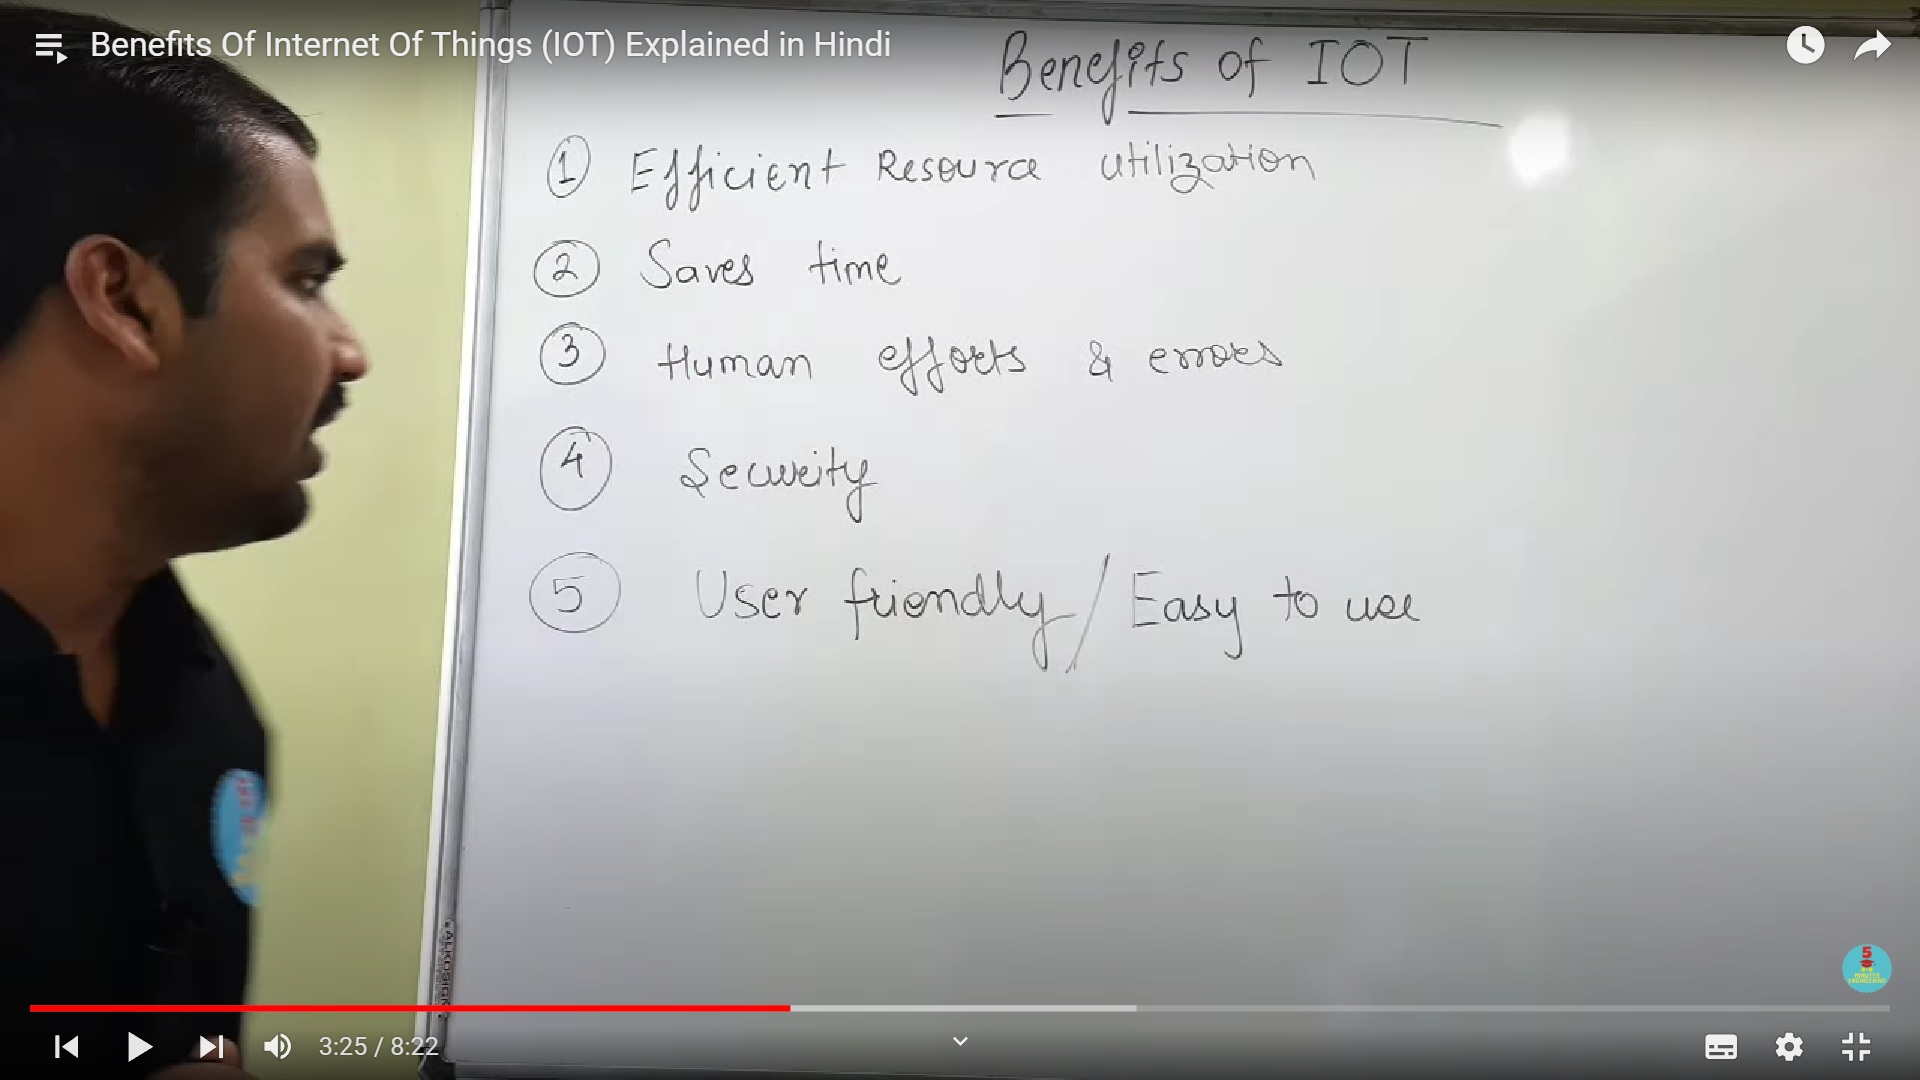 Benefits Of Internet Of Things (IOT) Explained in Hindi
Benefits of IOT
1 Efficient Resource utilization
2 Saves time
3 Human efforts & errors
4 Security
5 User friendly / Easy to use
5 MINUTES ENGINEERING
3:25 / 8:22